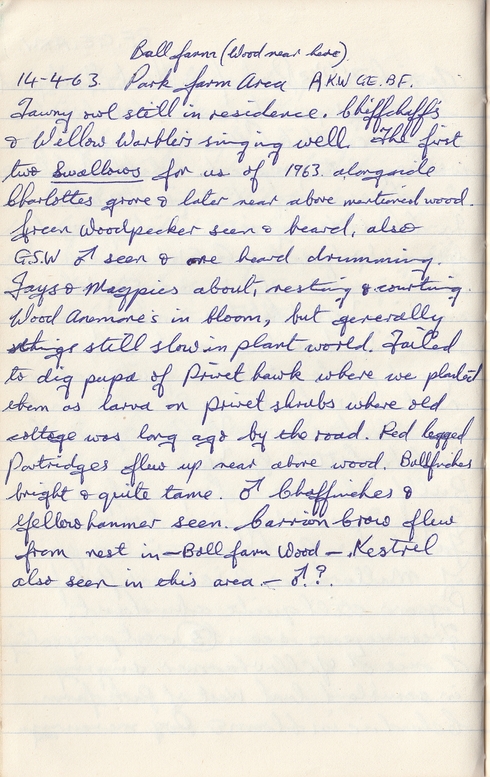 Ball farm (Wood near here).
14-4-63. Park farm Area AKW GE. BF.
Tawny owl still in residence. Chiffchaffs
& Willow Warblers singing well. The first
two Swallows for us of 1963. alongside
Charlottes grove & later near above mentioned wood.
Green Woodpecker seen & heard, also
G.S.W ♂ seen & one heard drumming.
Jays & Magpies about, nesting & courting.
Wood Anemone's in bloom, but generally
things still slow in plant world. Failed
to dig pupa of Privet hawk where we planted
them as larva on privet shrubs where old
cottage was long ago by the road. Red legged
Partridges flew up near above wood. Bullfinches
bright & quite tame. ♂ Chaffinches &
Yellowhammer seen. Carrion Crow flew
from nest in - Ball farm Wood - Kestrel
also seen in this area - ♂?.